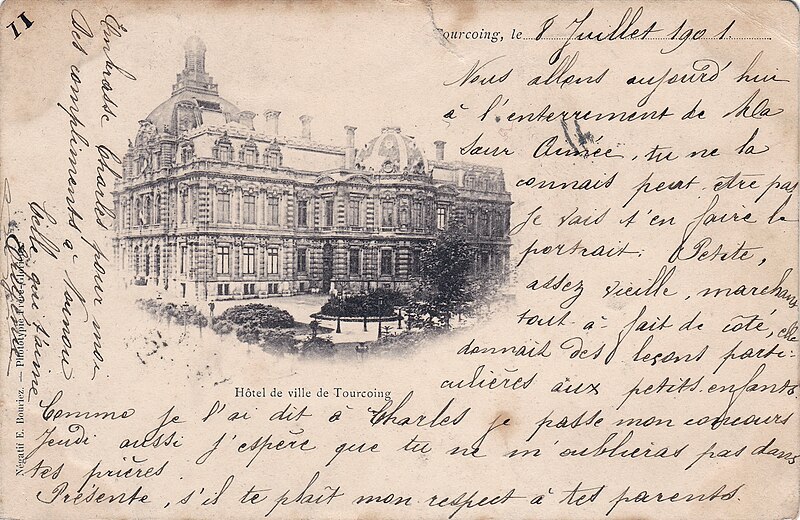 11
Tourcoing, le 8 Juillet 1901.
Nous allons aujourd'hui
à l'enterrement de Ma
Sœur Aimée, tu ne la
connais peut être pas
Je vais t'en faire le
portrait: Petite,
assez vieille, marchant
tout à fait de côté, elle
donnait des leçons parti-
culières aux petits enfants
Comme je l'ai dit à Charles je passe mon concours
Jeudi aussi j'espère que tu ne m'oublieras pas dans
tes prières.
Présente, s'il te plaît mon respect à tes parents.
Hôtel de ville de Tourcoing
Embrasse Charles pour moi
Des compliments à
qui t'aime
Négatif E. Bouriez. —